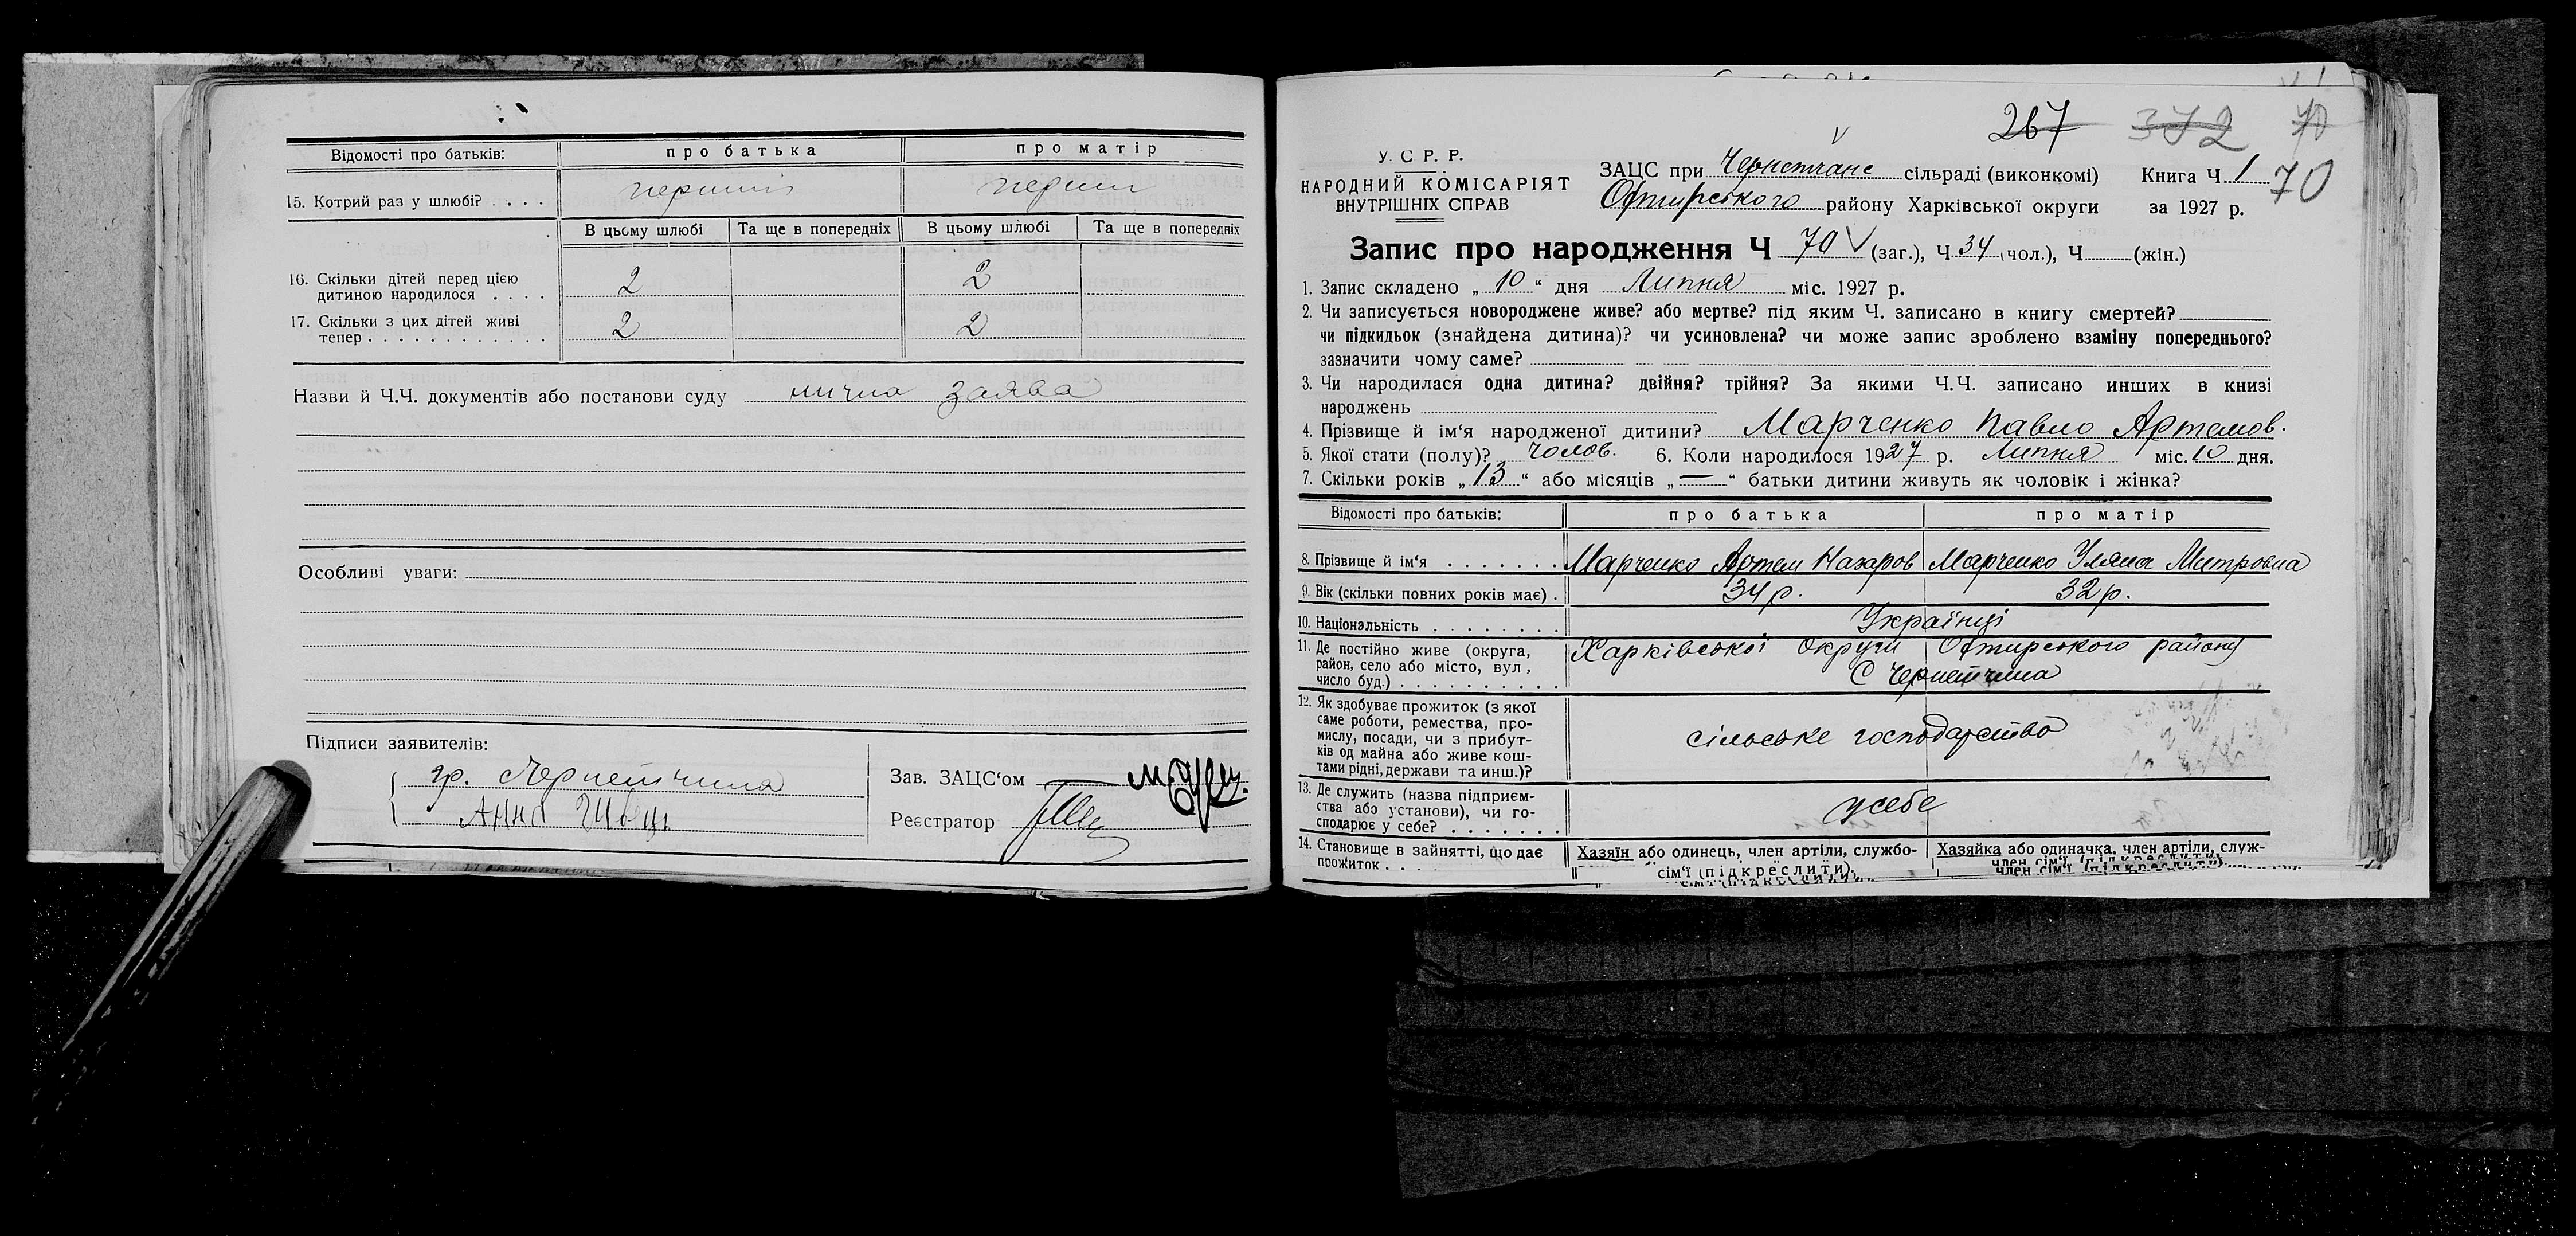 Відомості про батьків: про батька про матір
15. Котрий раз у шлюбі? . . . . перший перший
В цьому шлюбі Та ще в попередніх В цьому шлюбі Та ще в попередніх
16. Скільки дітей перед цією
дитиною народилося . . . . 2 2
17. Скільки з цих дітей живі
тепер . . . . . . . . . . . . 2 2
Назви й Ч.Ч. документів або постанови суду заява
Особливі уваги:
Підписи заявителів:
гр. Чернетчина
Анна Швець
Зав. ЗАЦС‘ом
Реєстратор
267 372 70
У. С Р. Р.
НАРОДНИЙ КОМІСАРІЯТ
ВНУТРІШНІХ СПРАВ
ЗАЦС при Чернетчане сільраді (виконкомі) Книга Ч 1 70
Охтирського району Харківської округи за 1927 р.
Запис про народження Ч 70 V (заг.), Ч 34 (чол.), Ч (жін.)
1. Запис складено „ 10 “ дня Липня міс. 1927 р.
2. Чи записується новороджене живе? або мертве? під яким Ч. записано в книгу смертей?
чи підкидьок (знайдена дитина)? чи усиновлена? чи може запис зроблено взаміну попереднього?
зазначити чому саме?
3. Чи народилася одна дитина? двійня? трійня? За якими Ч.Ч. записано инших в книзі
народжень
4. Прізвище й ім‘я народженої дитини? Марченко Павло Артемов.
5. Якої стати (полу)? Чолов. 6. Коли народилося 1927 р. Липня міс. 10 дня.
7. Скільки років „ 13 “ або місяців „ — “ батьки дитини живуть як чоловік і жінка?
Відомості про батьків: про батька про матір
8. Прізвище й ім‘я . . . . . . . Марченко Артем Назаров Марченко Уляна Митровна
9. Вік (скільки повних років має) . 34 р. 32 р.
10. Національність . . . . . . . . Українці
11. Де постійно живе (округа, Харківської Округи Охтирського району
район, село або місто, вул, С Чернетчина
число буд.) . . . . . . . . . .
12. Як здобуває прожиток (з якої
саме роботи, ремества, про-
мислу, посади, чи з прибут- сільське господарство
ків од майна або живе кош-
тами рідні, держави та инш.)?
13. Де служить (назва підприєм-
ства або установи), чи го- у себе
сподарює у себе? . . . . . . .
14. Становище в зайнятті, що дає Хазяїн або одинець, член артілі, службо- Хазяйка або одиначка, член артілі, служ-
прожиток . . . . сім‘ї (підкреслити). член сім‘ї (підкреслити)